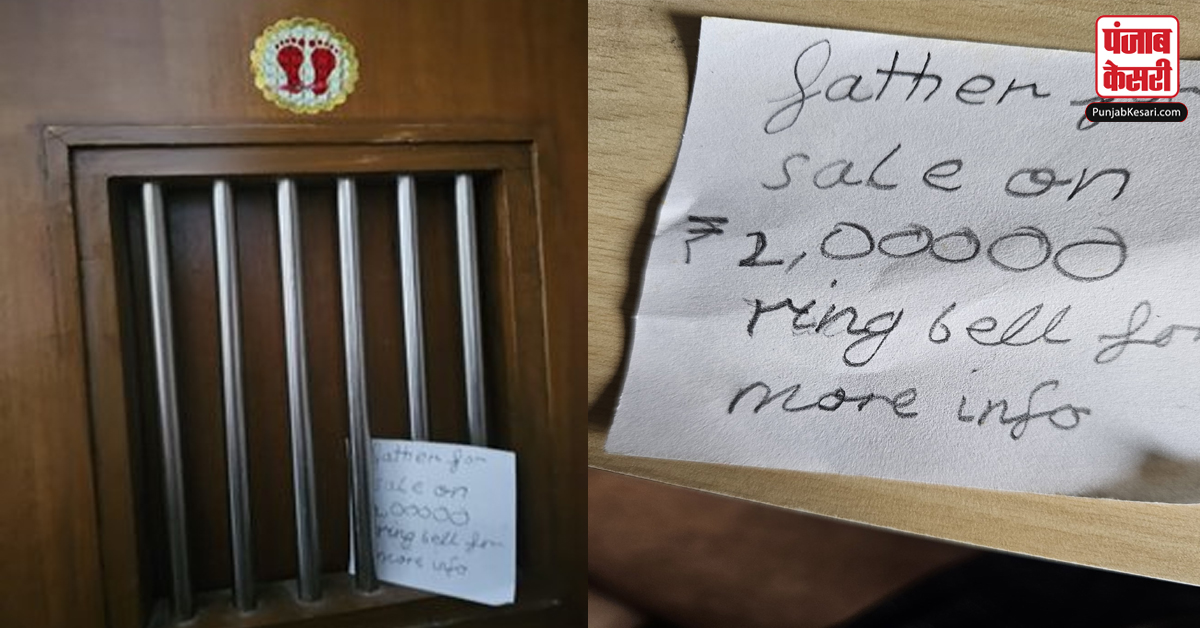 father for
sale on
2,00000
ring bell for
more info
father for
sale on
₹2,00000
ring bell for
more info
पंजाब
केसरी
PunjabKesari.com